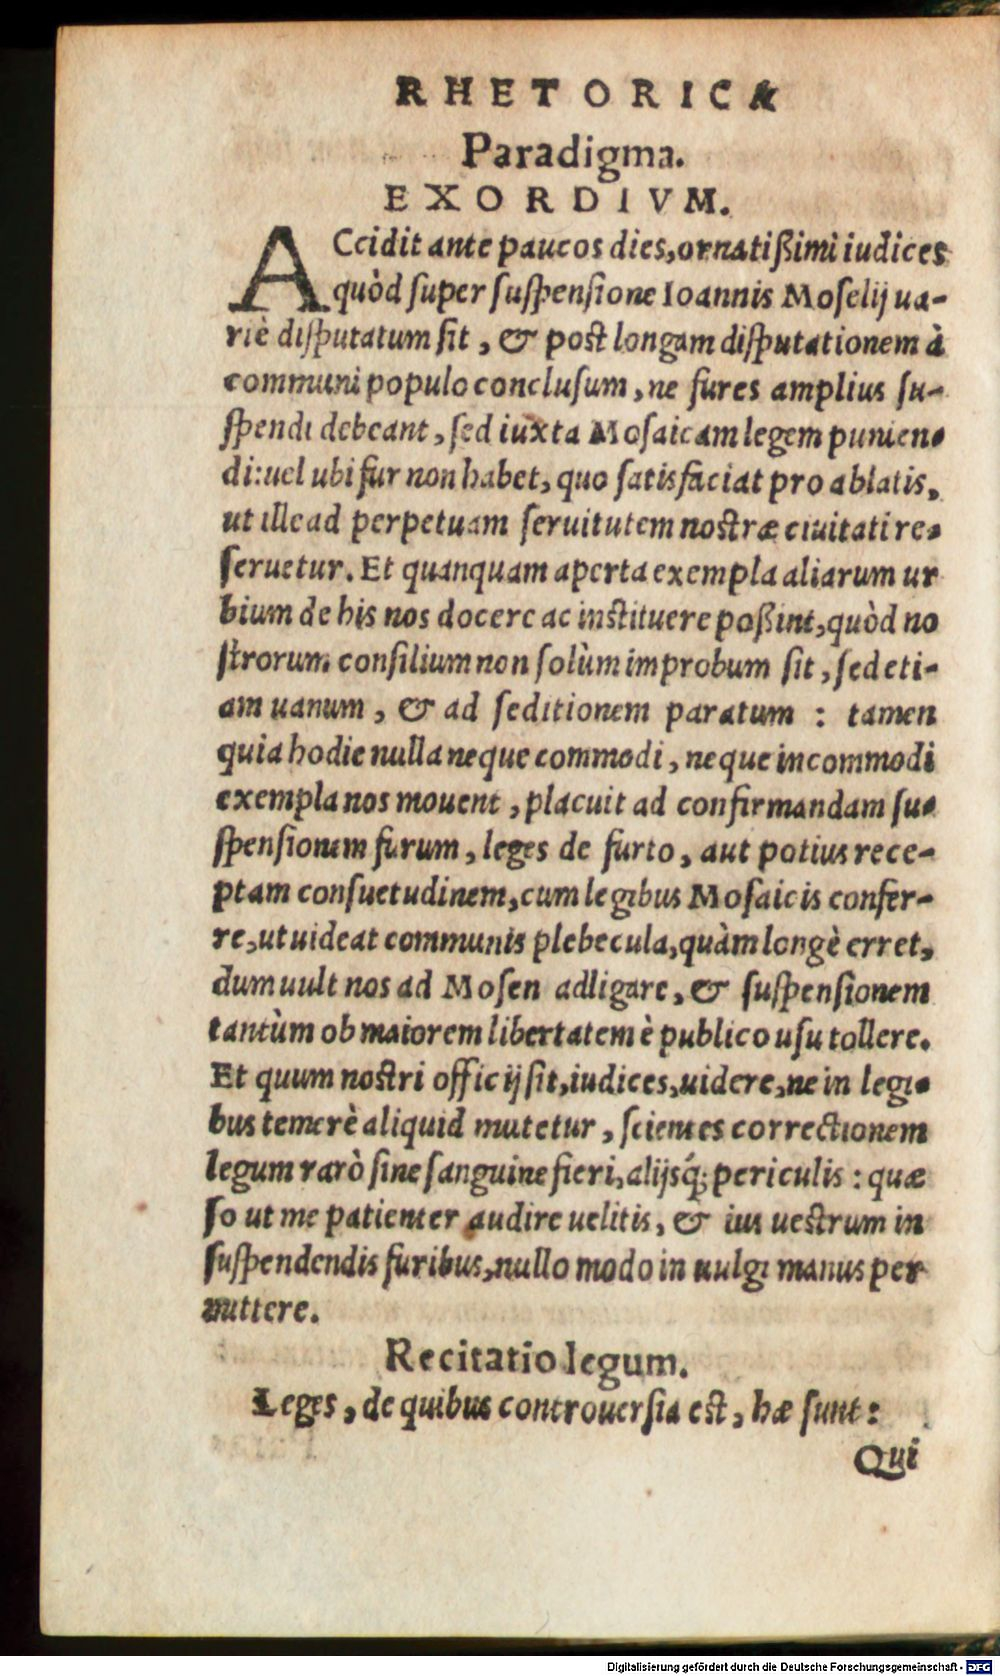 RHETORICA
Paradigma.
EXORDIVM.
ACcidit ante paucos dies, ornatißimi iudices
quòd ſuper ſuſpenſione Ioannis Moſelij ua-
riè diſputatum ſit, & poſt longam diſputationem à
communi populo concluſum, ne fures amplius ſu-
ſpendi debeant, ſed iuxta Moſaicam legem punien-
di: uel ubi fur non habet, quo ſatisfaciat pro ablatis,
ut ille ad perpetuam ſeruitutem noſtræ ciuitati re-
ſeruetur. Et quanquam aperta exempla aliarum ur
bium de his nos docere ac inſtituere poßint, quòd no
ſtrorum conſilium non ſolùm improbum ſit, ſed eti-
am uanum, & ad ſeditionem paratum : tamen
quia hodie nulla neque commodi, neque incommodi
exempla nos mouent, placuit ad confirmandam ſu-
ſpenſionem furum, leges de furto, aut potius rece-
ptam conſuetudinem, cum legibus Moſaicis confer-
re, ut uideat communis plebecula, quàm longè erret,
dum uult nos ad Moſen adligare, & ſuſpenſionem
tantùm ob maiorem libertatem è publico uſu tollere.
Et quum noſtri officij ſit, iudices, uidere, ne in legi-
bus temerè aliquid mutetur, ſcientes correctionem
legum rarò ſine ſanguine fieri, alijsq́; periculis : quæ
ſo ut me patienter audire uelitis, & ius ueſtrum in
ſuſpendendis furibus, nullo modo in uulgi manus per
mittere.
Recitatio legum.
Leges, de quibus controuerſia eſt, hæ ſunt:
Qui
Digitalisierung gefördert durch die Deutsche Forschungsgemeinschaft - DFG